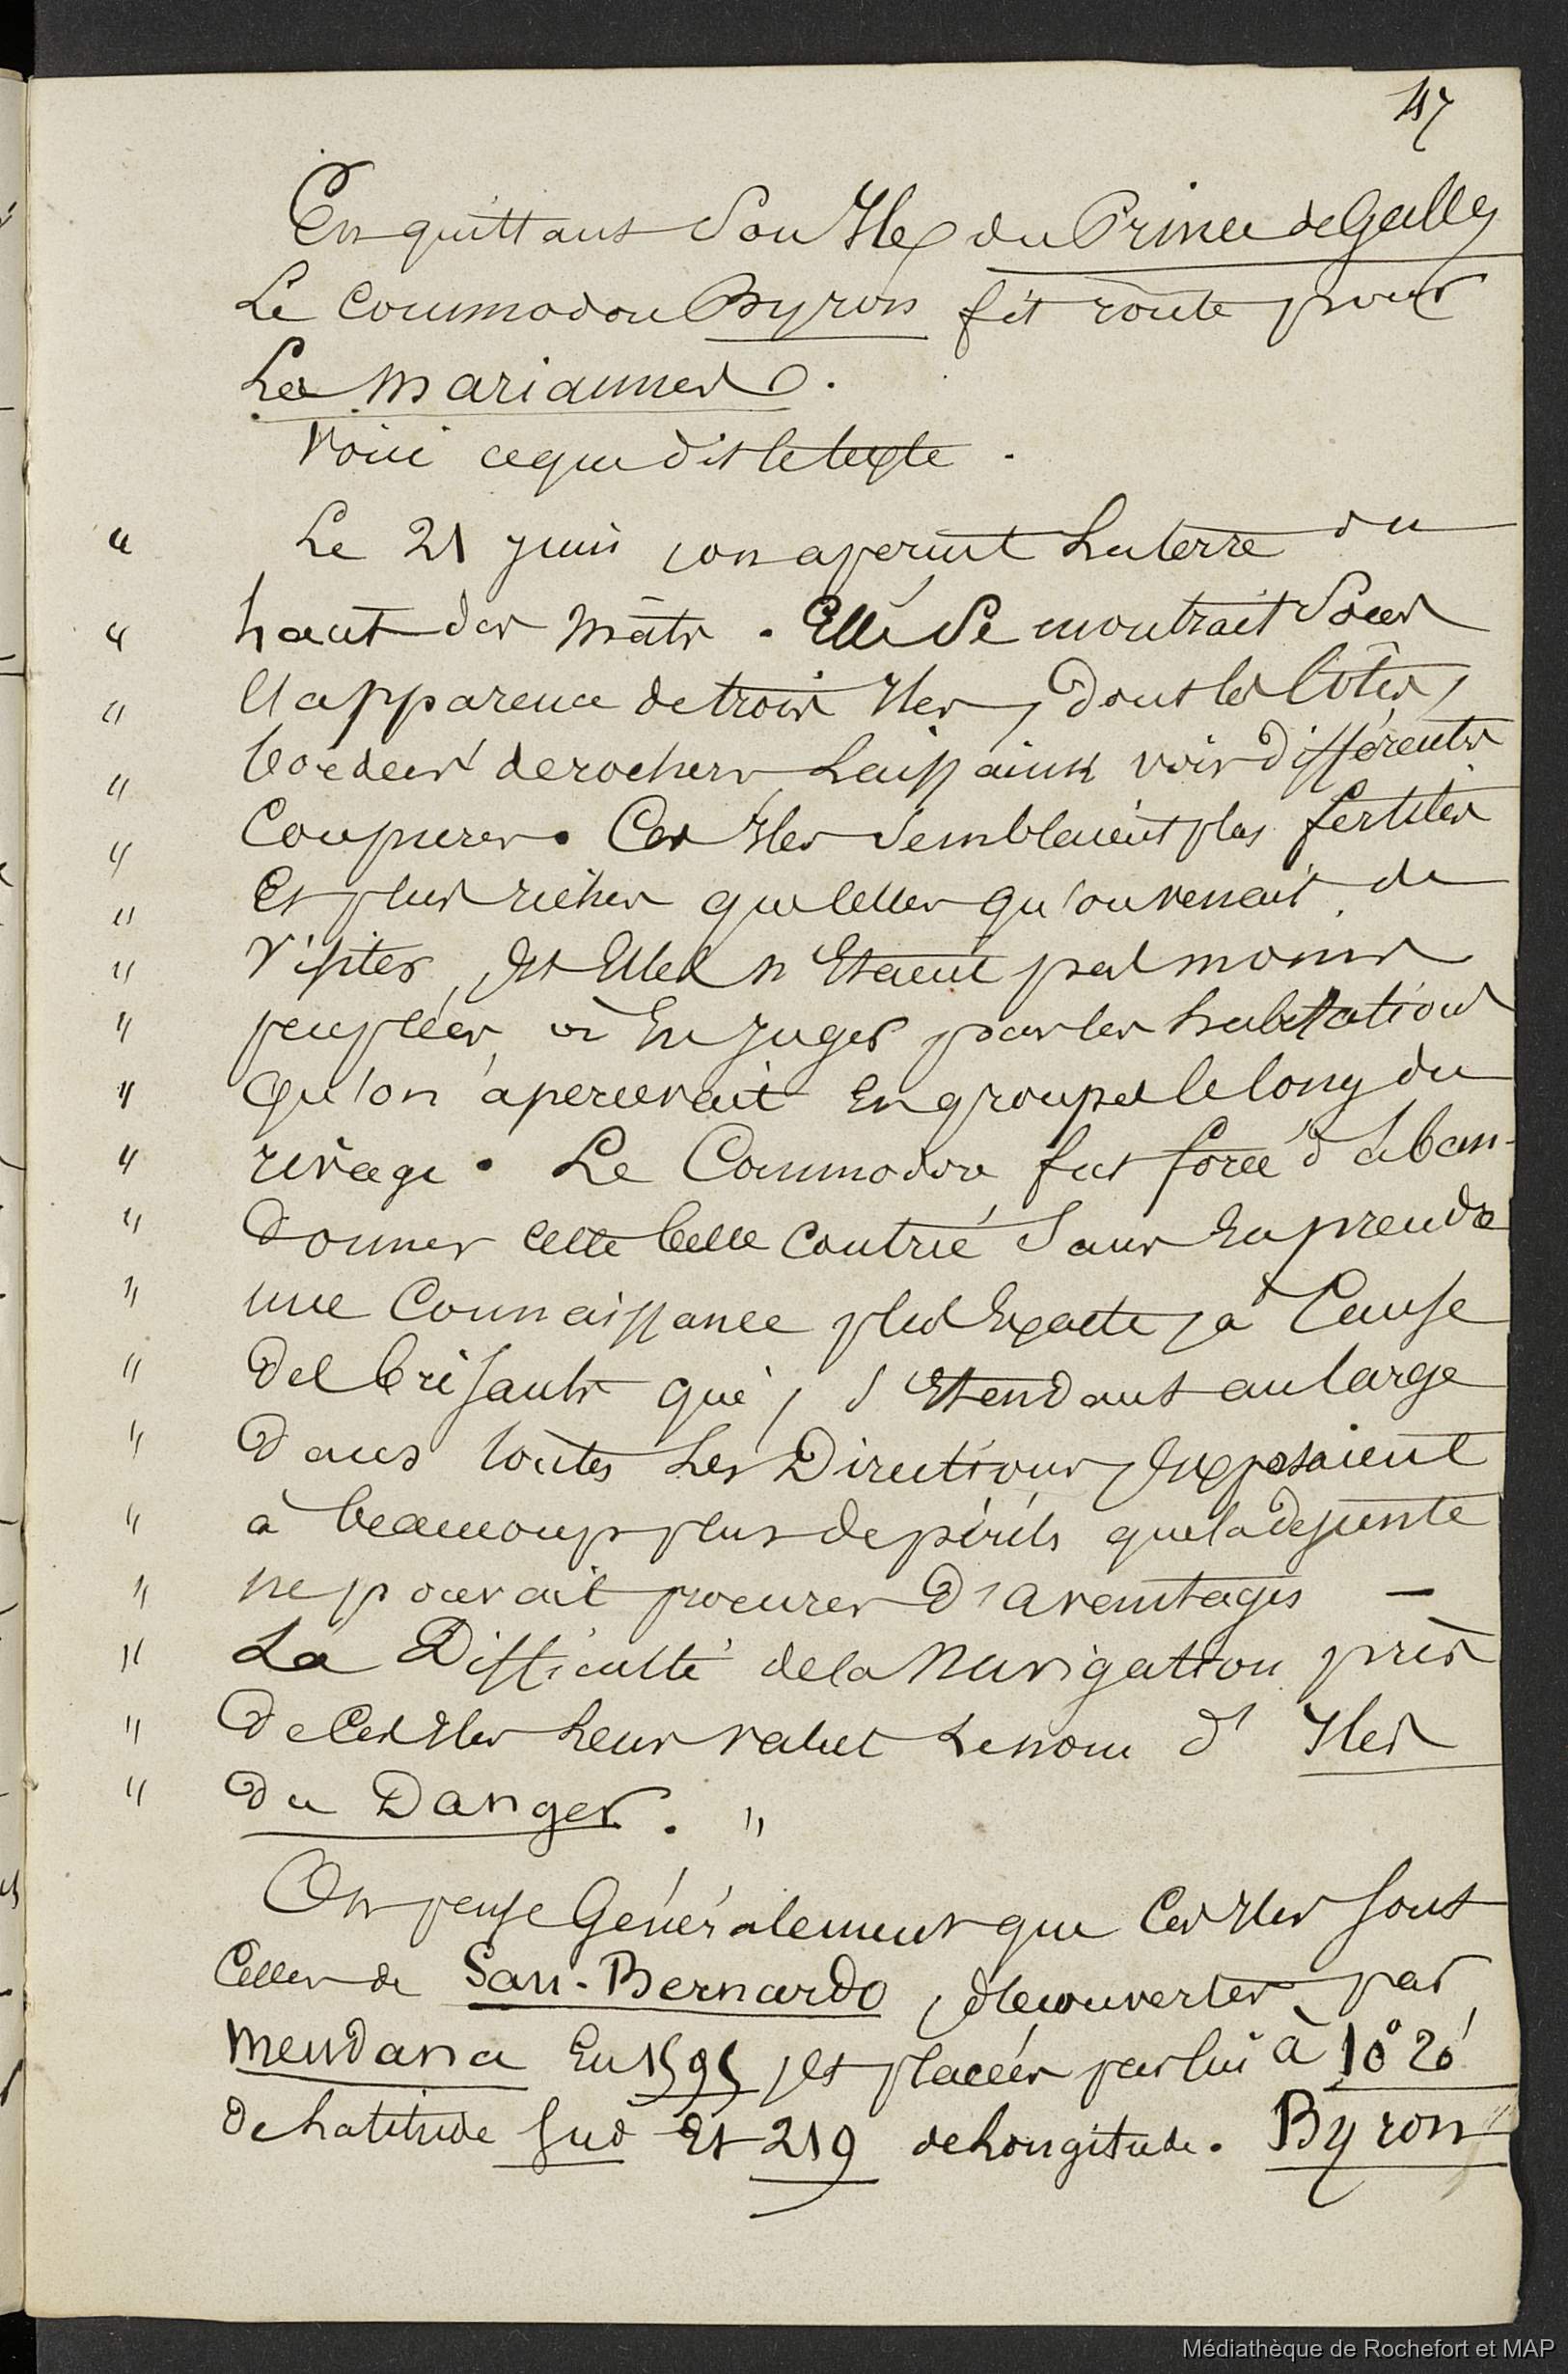 47
En quittant Son Ile du Prince de Galles
Le Commodore Byron fit route pour
Les Mariannes.
Voici ce que dit le texte.
" Le 21 juin, on aperçut La terre du
" haut des mâts. Elle Se montrait Sous
" l'apparence de trois Iles, Dont les Côtes,
" bordées de rochers Laissaient voir Différentes
" Coupures. Ces Iles Semblaient plus fertiles
" Et plus riches que celles qu'on venait de
" Visiter, Et Elles n'Etaient pas moins
" peuplées, à En Juger par les habitations
" Qu'on apercevait En groupes le long du
" rivage. Le Commodore fut forcé d'aban-
" Donner cette belle Contrée Sans En prendre
" une Connaissance plus Exacte, à Cause
" Des brisants qui, S'Etendant au large
" Dans toutes Les Directions, Exposaient
" à beaucoup plus de périls que la descente
" ne pouvait procurer D'avantages —
" La Difficulté de la Navigation près
" De Ces Iles Leur valut Le nom d'Iles
" Du Danger. "
On pense Généralement que Ces Iles Sont
Celles de San-Bernardo, découvertes par
Mendana En 1595, Et placées par lui à 10° 20'
De Latitude Sud Et 219 de Longitude. Byron
Médiathèque de Rochefort et MAP